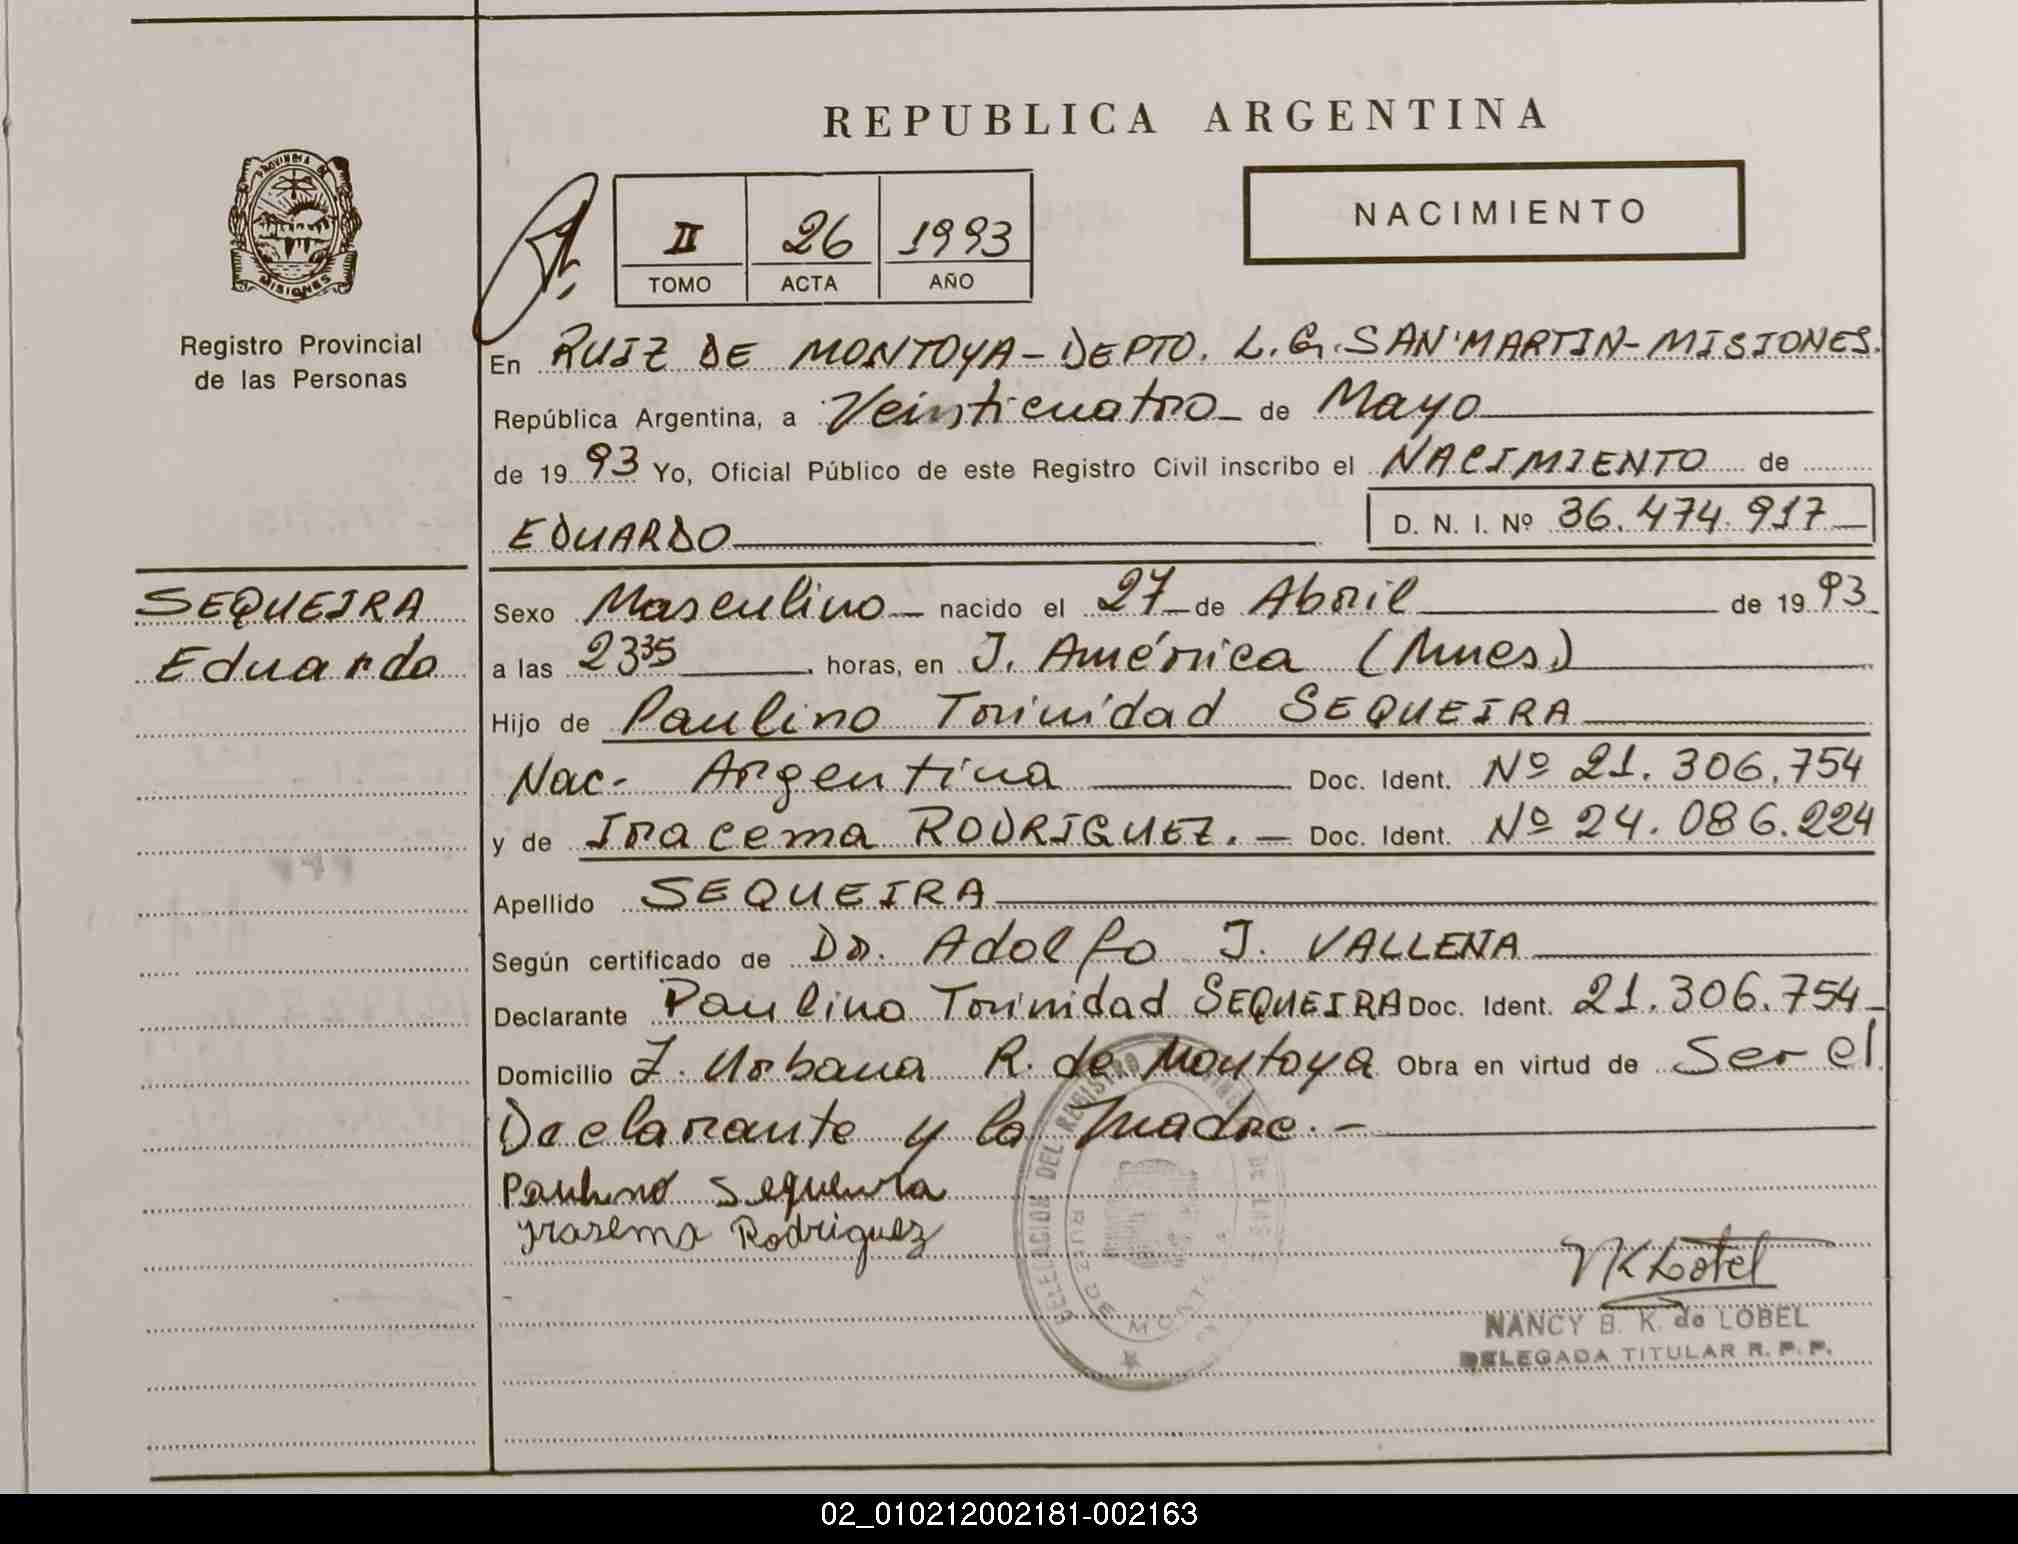 REPUBLICA ARGENTINA
PROVINCIA DE
MISIONES
Registro Provincial
de las Personas
II 26 1993
TOMO ACTA AÑO
NACIMIENTO
En RUIZ DE MONTOYA - DEPTO. L.G. SAN MARTIN - MISIONES.
República Argentina, a Veinticuatro de Mayo
de 1993 Yo, Oficial Público de este Registro Civil inscribo el NACIMIENTO de
EDUARDO D. N. I. Nº 36.474.917
SEQUEIRA
Eduardo
Sexo Masculino nacido el 27 de Abril de 1993
a las 23 35 horas, en J. América (Mnes.)
Hijo de Paulino Trinidad SEQUEIRA
Nac. Argentina Doc. Ident. Nº 21.306.754
y de Iracema RODRIGUEZ. - Doc. Ident. Nº 24.086.224
Apellido SEQUEIRA
Según certificado de Dr. Adolfo J. VALLENA
Declarante Paulino Trinidad SEQUEIRA Doc. Ident. 21.306.754
Domicilio Z. Urbana R. de Montoya Obra en virtud de Ser el
Declarante y la Madre. -
Paulino Sequeira
Yrasema Rodriguez
DELEGACION DEL REGISTRO DE LAS
RUIZ DE MONTOYA
NANCY B. K. de LOBEL
DELEGADA TITULAR R. P. P.
02_010212002181-002163